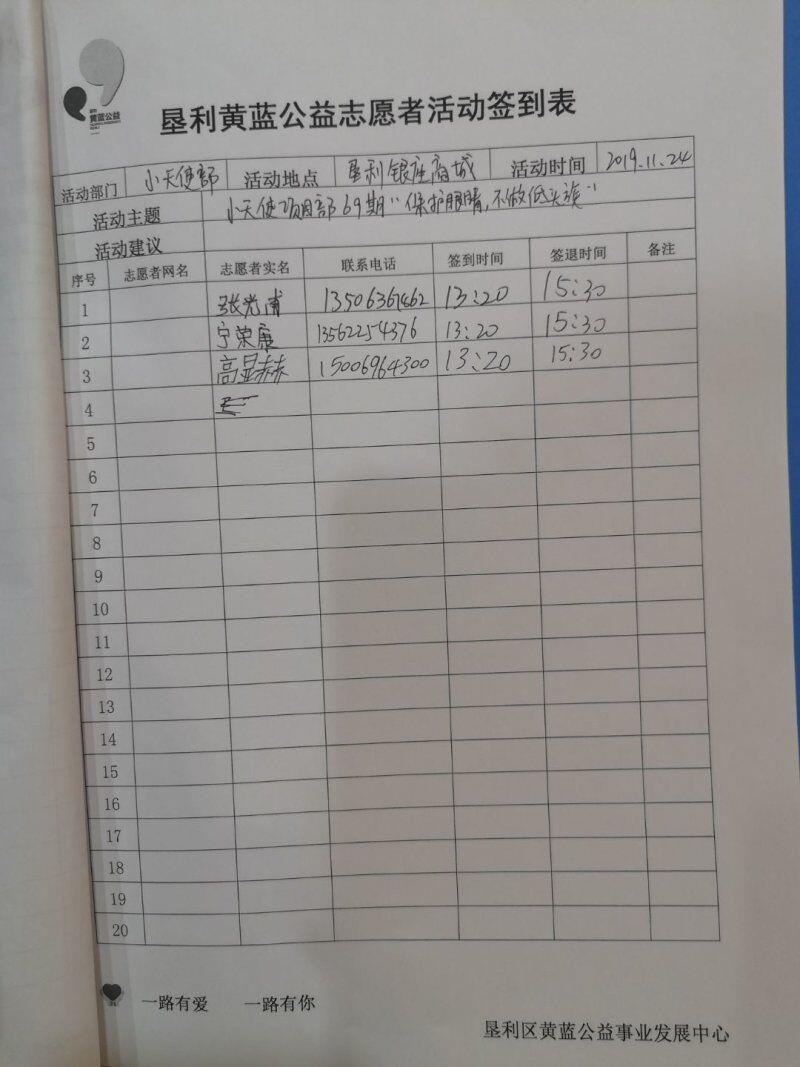 黄蓝公益
垦利黄蓝公益志愿者活动签到表
活动部门 小天使部 活动地点 垦利银座商城 活动时间 2019.11.24
活动主题 小天使项目部69期"保护眼睛,不做低头族"
活动建议
序号 志愿者网名 志愿者实名 联系电话 签到时间 签退时间 备注
1 张光甫 13:20 15:30
2 宁荣康 13562254376 13:20 15:30
3 高显赫 15006964300 13:20 15:30
4
5
6
7
8
9
10
11
12
13
14
15
16
17
18
19
20
一路有爱 一路有你
垦利区黄蓝公益事业发展中心